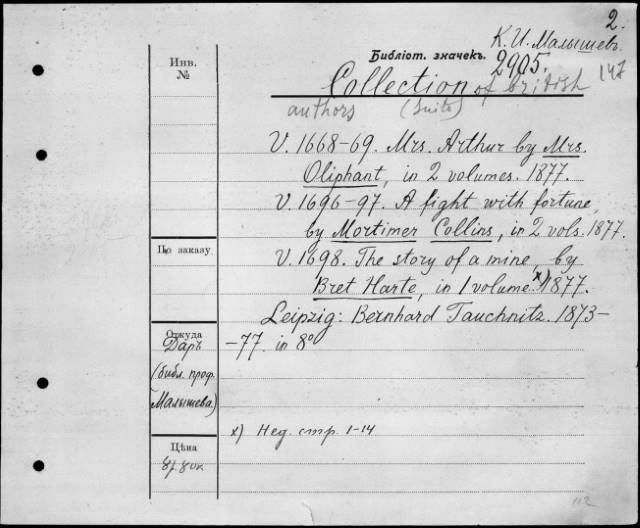 2.
К. И. Малышевъ.
Библіот. значекъ.
2905.
147
Инв.
№
Collection of british
authors (Suite)
V. 1668-69. Mrs. Arthur by Mrs.
Oliphant, in 2 volumes. 1877.
V. 1696-97. A fight with fortune,
by Mortimer Collins, in 2 vols. 1877.
По заказу.
V. 1698. The story of a mine, by
Bret Harte, in 1 volume. x) 1877.
Leipzig: Bernhard Tauchnitz. 1873-
Откуда
Даръ
-77. in 8°
(библ. проф.
Малышева)
x) Нед. стр. 1-14
Цѣна
112